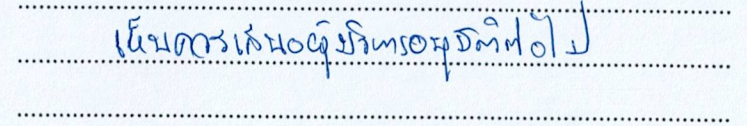 เห็นควรเสนอผู้บริหารอนุมัติต่อไป